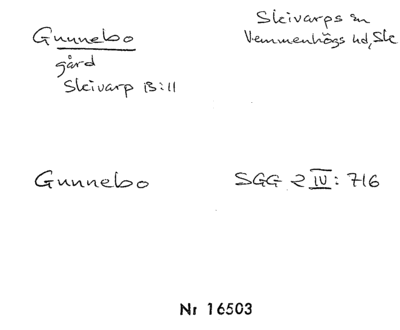 Gunnebo
gård
Skivarp 13:11
Skivarps sn
Vemmenhögs hd, Sk
Gunnebo SGG 2 IV: 716
Nr 16503